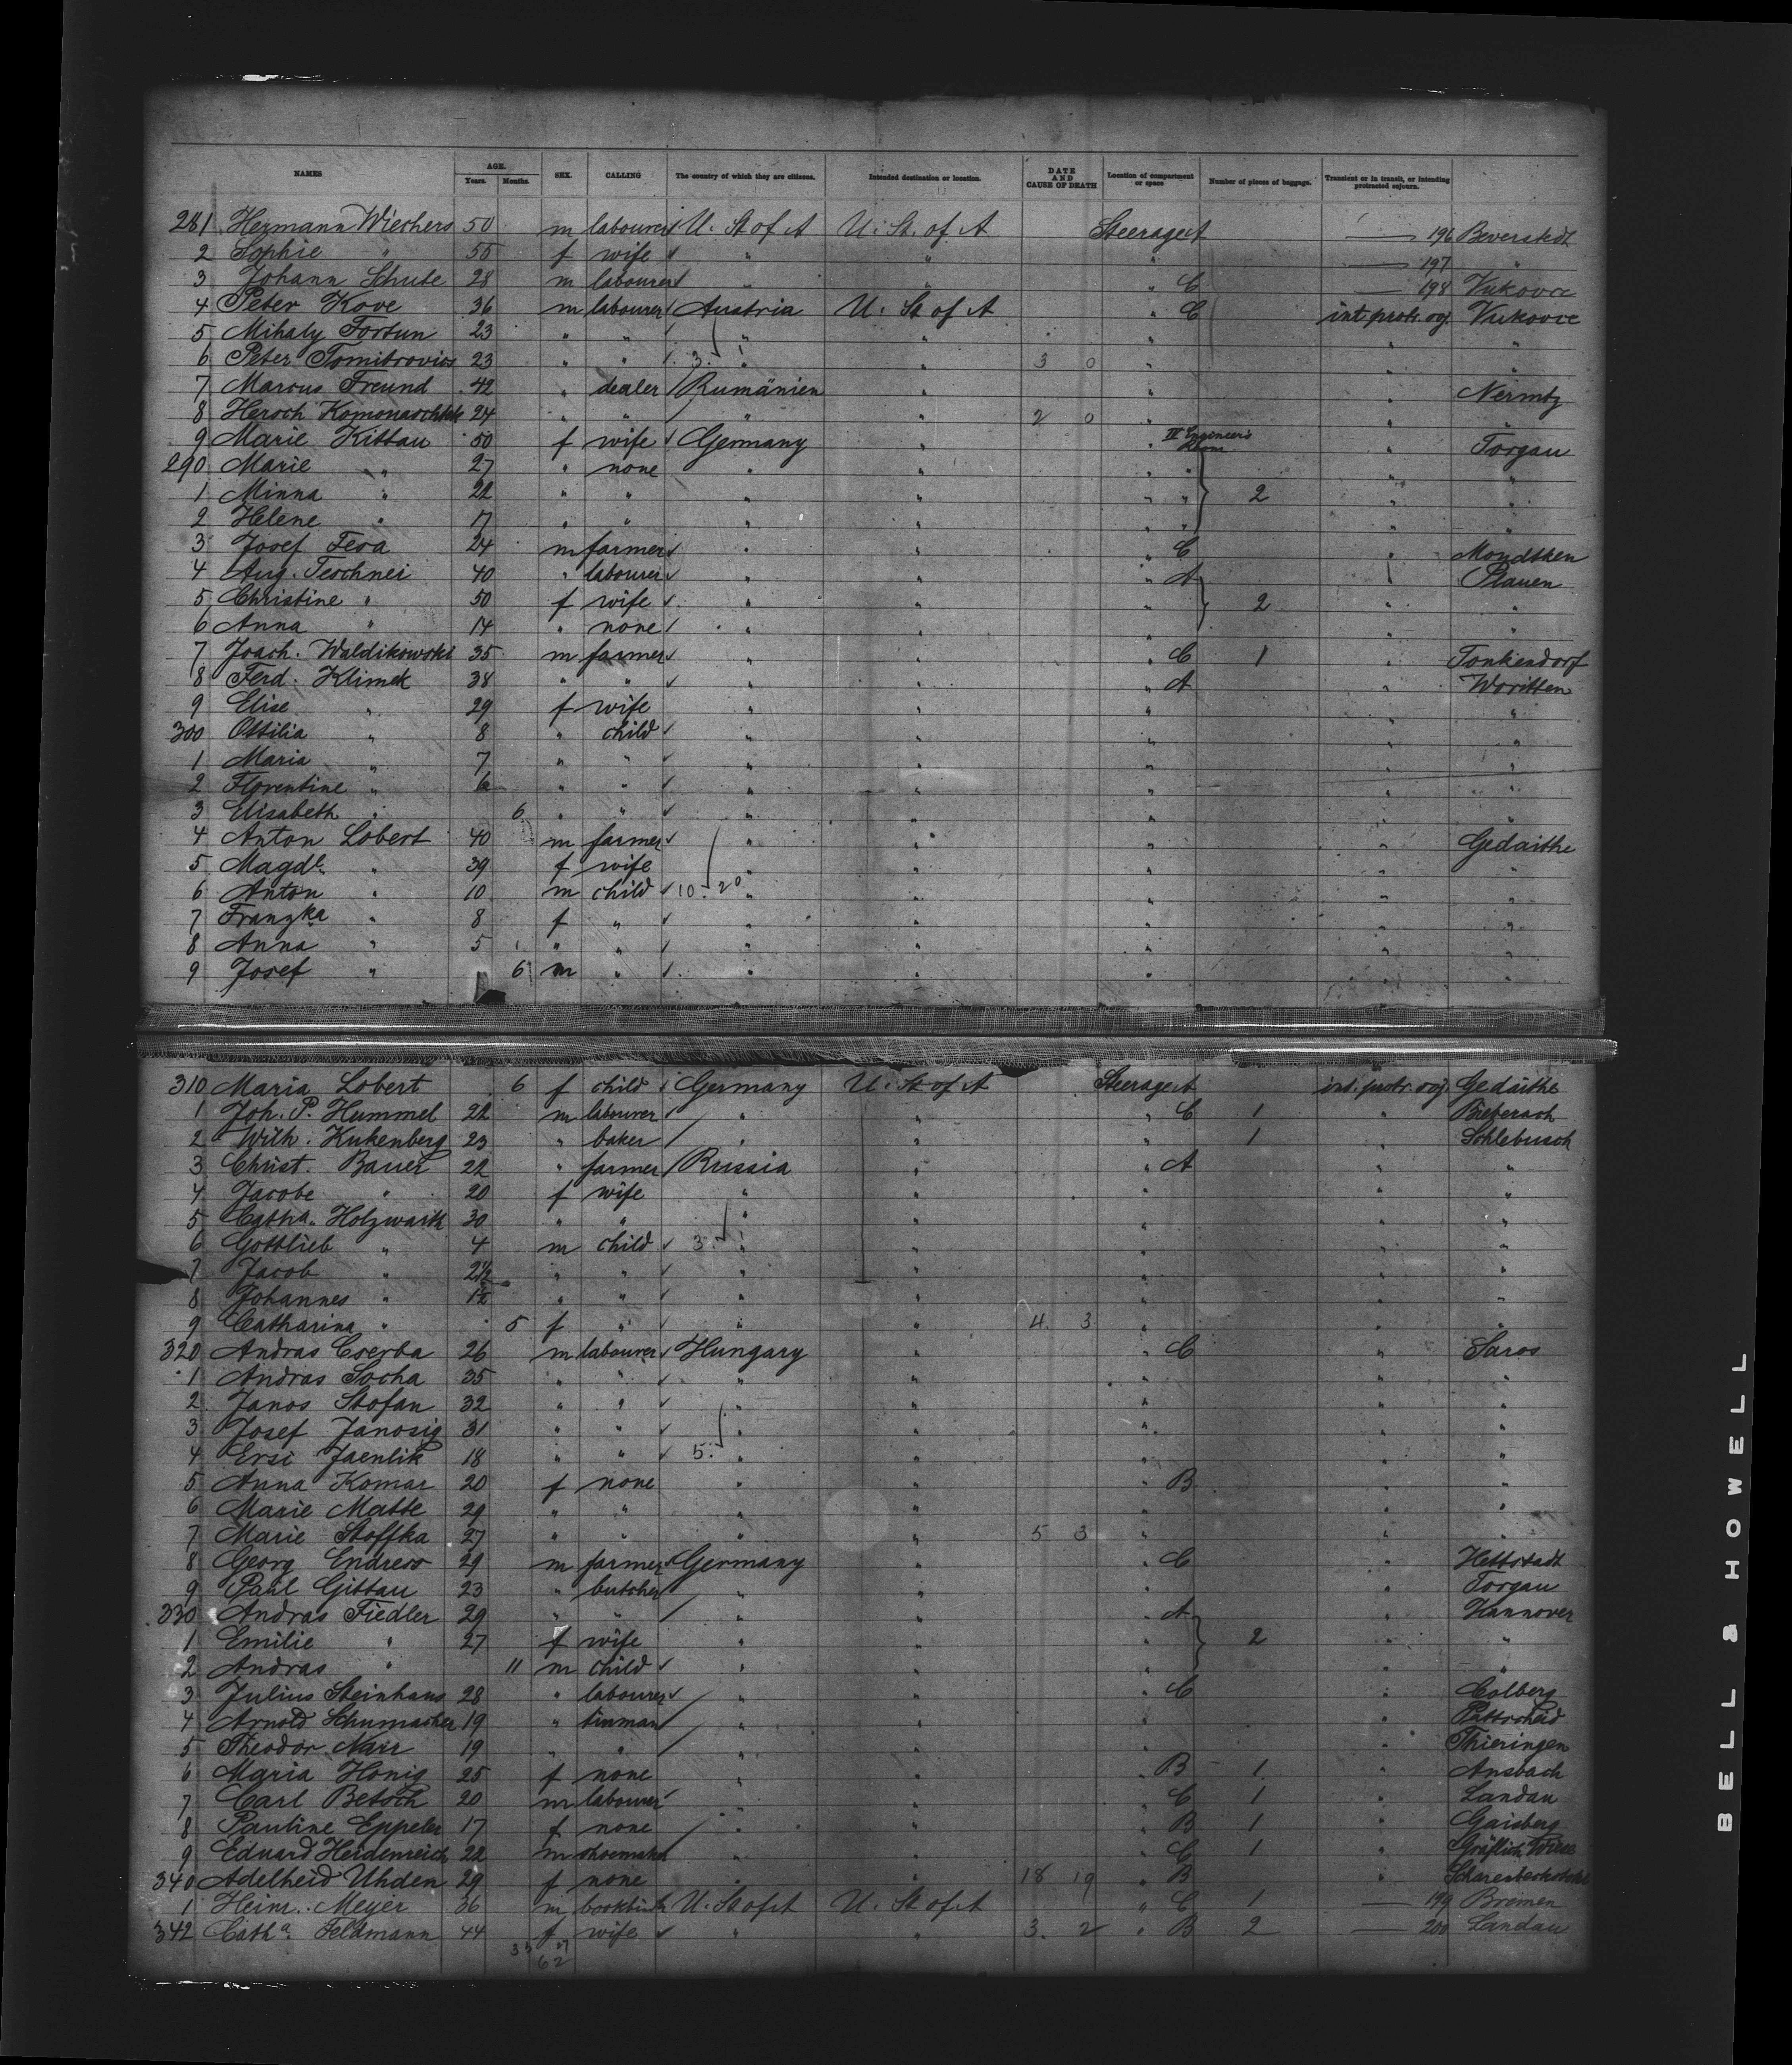 NAMES AGE. Years. Months. SEX. CALLING The country of which they are citizens. Intended destination or location. DATE AND CAUSE OF DEATH Location of compartment or space Number of pieces of baggage. Transient or in transit, or intending protracted sojourn.
281 Hermann Wiechers 50 m labourer U. St of A U. St. of A Steerage A — 196 Beverstedt
2 Sophie " 55 f wife " " " — 197 "
3 Johann Schute 28 m labourer " " " C — 198
4 Peter Kove 36 m labourer Austria U. St of A " C int. protr. sog. Vukovce
5 Mihaly Fortun 23 " " " " " " "
6 Peter Tomitrovics 23 " " 3. " " 3 0 " " "
7 Marcus Freund 42 " dealer Rumänien " " "
8 Heroch 24 " " " " 2 0 " "
9 Marie Kittau 50 f wife Germany " " II Engineer's Room " Torgau
290 Marie " 27 " none " " " " " "
1 Minna " 22 " " " " " " 2 " "
2 Helene " 17 " " " " " " " "
3 Josef 24 m farmer " " " C "
4 Aug. 40 " labourer " " " A " Plauen
5 Christine " 50 f wife " " " 2 " "
6 Anna " 14 " none " " " " "
7 Joach. Waldikowski 35 m farmer " " " C 1 " Tonkendorf
8 Ferd. Klimek 38 " " " " " A " Woritten
9 Elise " 29 f wife " " " " "
300 Ottilia " 8 " child " " " " "
1 Maria " 7 " " " " " " "
2 Florentine " 6 " " " " " " "
3 Elisabeth " 6 " " " " " " "
4 Anton Lobert 40 m farmer " " " " Gedaithe
5 Magdl. " 39 f wife " " " " "
6 Anton " 10 m child 10 20 " " " " "
7 Franzka " 8 f " " " " " "
8 Anna " 5 " " " " " " "
9 Josef " 6 m " " " " " "
310 Maria Lobert 6 f child Germany U. St of A Steerage A int. protr. sog. Gedaithe
1 Joh. P. Hummel 22 m labourer " " " C 1 " Bieberach
2 Wilh. Kukenberg 23 " baker " " " 1 " Schlebusch
3 Christ. Bauer 22 " farmer Russia " " A " "
4 Jacobe " 20 f wife " " " " "
5 Catha. Holzwarth 30 " " " " " " "
6 Gottlieb " 4 m child 3. " " " " "
7 Jacob " 2½ " " " " " " "
8 Johannes " 1½ " " " " " " "
9 Catharina " 5 f " " " 4. 3 " " "
320 Andras Cserba 26 m labourer Hungary " " C " Saros
1 Andras Socha 35 " " " " " " "
2 Janos Stofan 32 " " " " " " "
3 Josef Janosig 31 " " " " " " "
4 Ersi Jaenlik 18 " " 5. " " " " "
5 Anna Komar 20 f none " " " B " "
6 Marie Matte 29 " " " " " " "
7 Marie Stoffka 27 " " " " 5 3 " " "
8 Georg Endress 29 m farmer Germany " " C " Hettstadt
9 Paul Gittau 23 " butcher " " " " Torgau
330 Andras Fiedler 29 " " " " " A " Hannover
1 Emilie " 27 f wife " " " 2 " "
2 Andras " 11 m child " " " " "
3 Julius Steinhaus 28 " labourer " " " C " Colberg
4 Arnold Schumacher 19 " tinman " " " "
5 Theodor Narr 19 " " " " " " Thieringen
6 Maria Honig 25 f none " " " B 1 " Ansbach
7 Carl Betsch 20 m labourer " " " C 1 " Landau
8 Pauline Eppeler 17 f none " " " B 1 " Gaisberg
9 Eduard Heidenreich 22 m shoemaker " " " C 1 "
340 Adelheid Uhden 29 f none " " 18 19 " B "
1 Heinr. Meyer 36 m bookbinder U. St of A U. St of A " C 1 — 199 Bremen
342 Catha. Feldmann 44 f wife " " 3. 2 " B 2 — 200 Landau
62
BELL & HOWELL